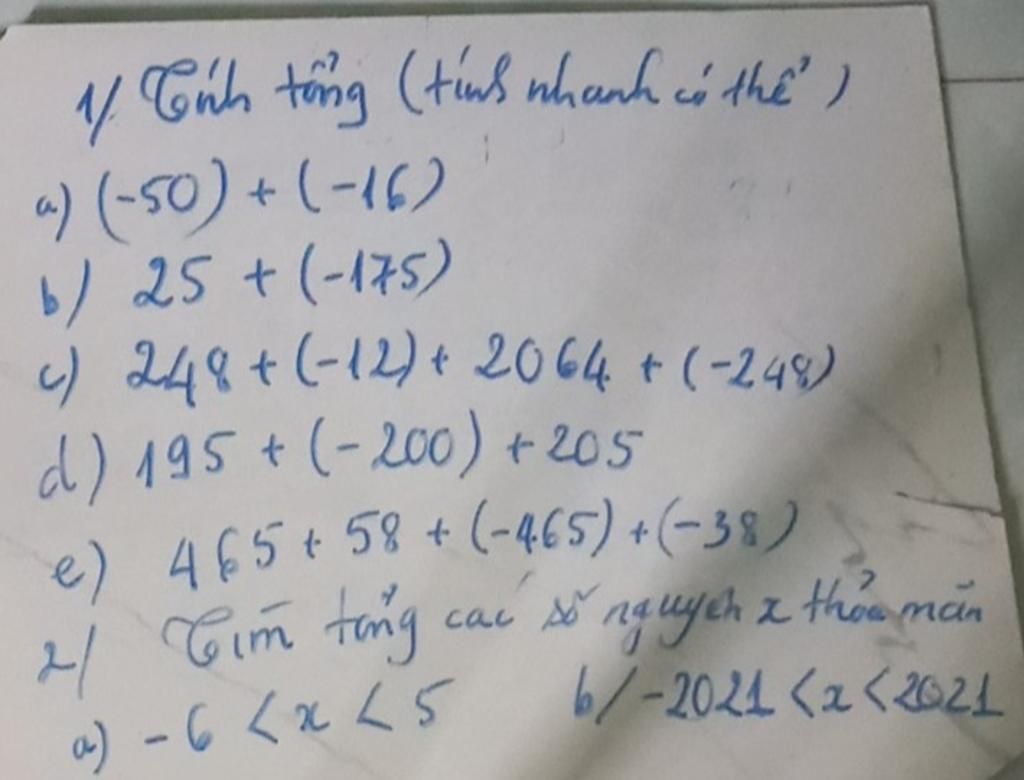 1/. Tính tổng (tính nhanh có thể)
a) (-50) + (-16)
b) 25 + (-175)
c) 248 + (-12) + 2064 + (-248)
d) 195 + (-200) + 205
e) 465 + 58 + (-465) + (-38)
2/ Tìm tổng các số nguyên x thỏa mãn
a) -6 < x < 5 b/ -2021 < x < 2021